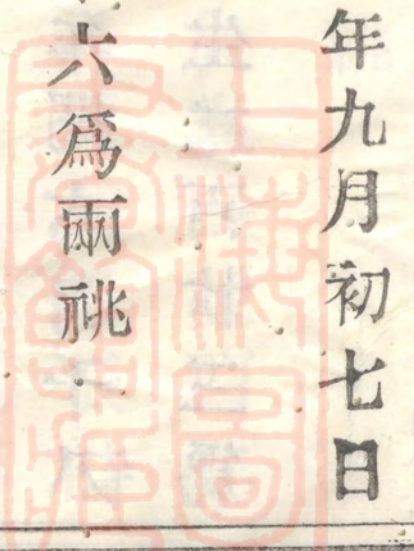 年九月初七日
六為兩祧